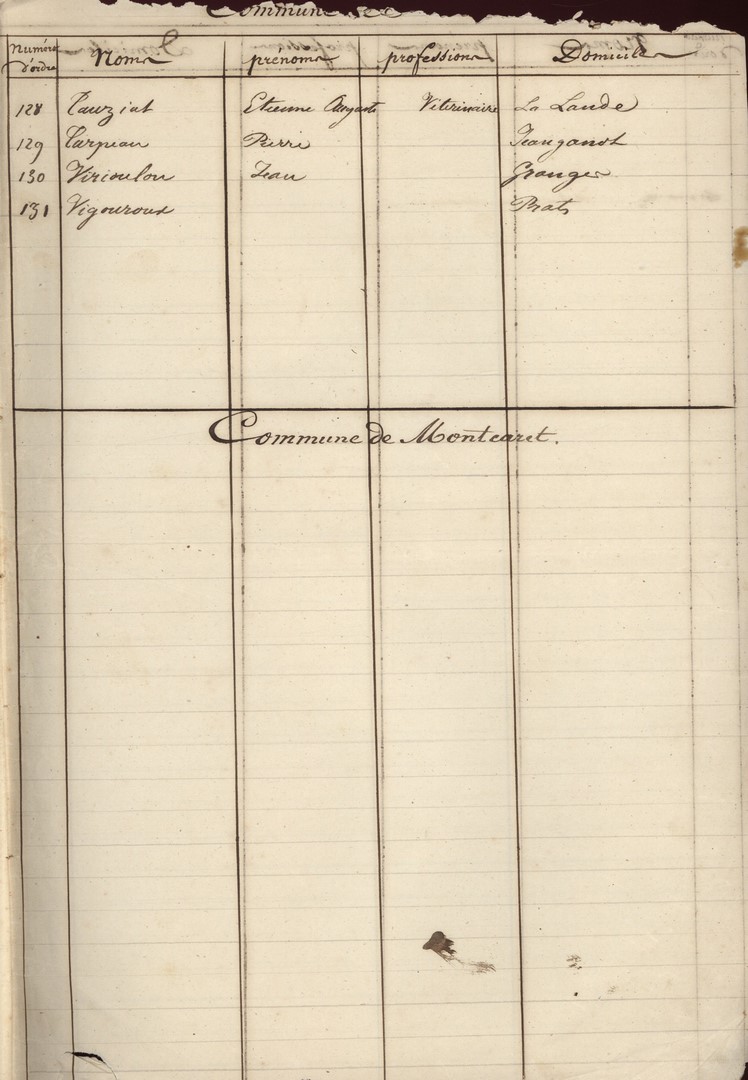 Commune de
Numéro d'ordre Noms prenoms professions Domicile
128 Tauziat Etienne Auguste Vétérinaire La Lande
129 Tarpeau Pierre Jeanganot
130 Virioulou Jean Granger
131 Vigouroux Prats
Commune de Montcaret.